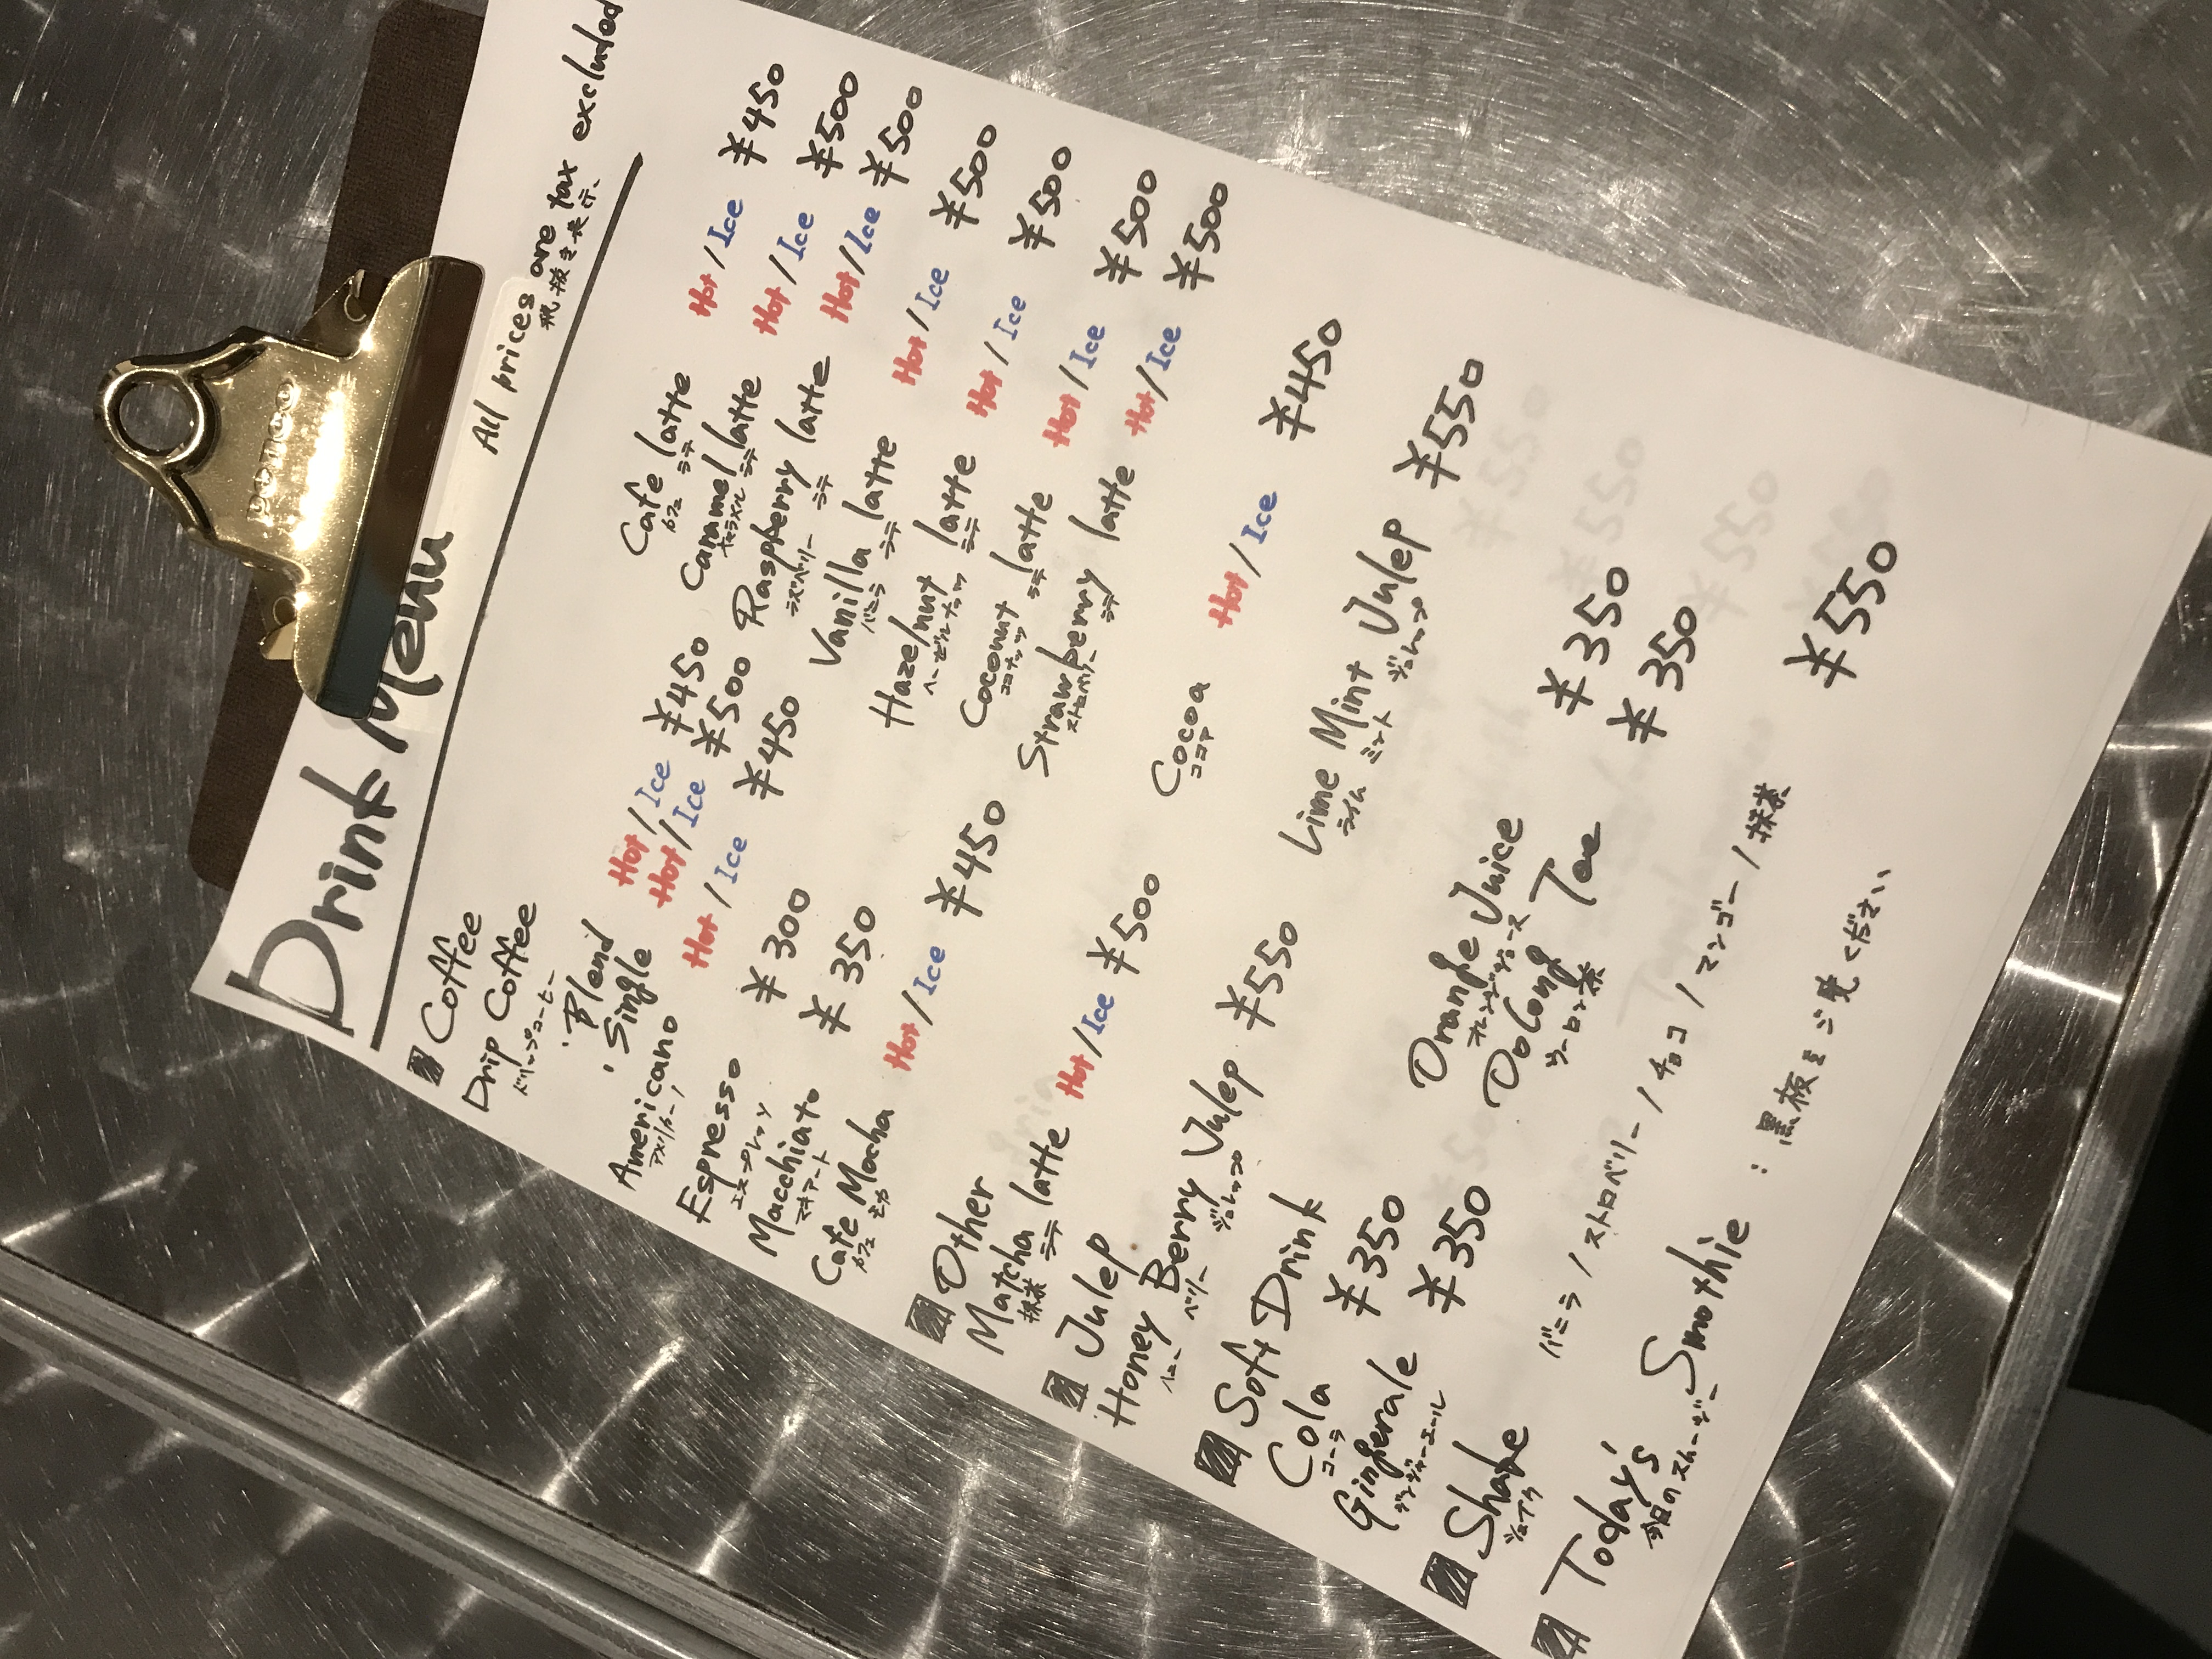 Drink Menu
All prices are tax excluded
税抜き表示
Coffee
Drip Coffee
ドリップコーヒー
・Blend Hot/Ice ¥450
・Single Hot/Ice ¥500
Americano Hot/Ice ¥450
アメリカーノ
Espresso ¥300
エスプレッソ
Macchiato ¥350
マキアート
Cafe Mocha Hot/Ice ¥450
カフェ モカ
Cafe latte Hot/Ice ¥450
カフェ ラテ
Caramel latte Hot/Ice ¥500
キャラメル ラテ
Raspberry latte Hot/Ice ¥500
ラズベリー ラテ
Vanilla latte Hot/Ice ¥500
バニラ ラテ
Hazelnut latte Hot/Ice ¥500
ヘーゼルナッツ ラテ
Coconut latte Hot/Ice ¥500
ココナッツ ラテ
Strawberry latte Hot/Ice ¥500
ストロベリー ラテ
Other
Matcha latte Hot/Ice ¥500
抹茶 ラテ
Cocoa Hot/Ice ¥450
ココア
Julep
Honey Berry Julep ¥550
ハニー ベリー ジュレップ
Lime Mint Julep ¥550
ライム ミント ジュレップ
Soft Drink
Cola ¥350
コーラ
Gingerale ¥350
ジンジャーエール
Orange Juice ¥350
オレンジジュース
Oolong Tea ¥350
ウーロン茶
Shake
シェイク
バニラ/ストロベリー/チョコ/マンゴー/抹茶 ¥550
Today's Smothie : 黒板をご覧ください
今日のスムージー